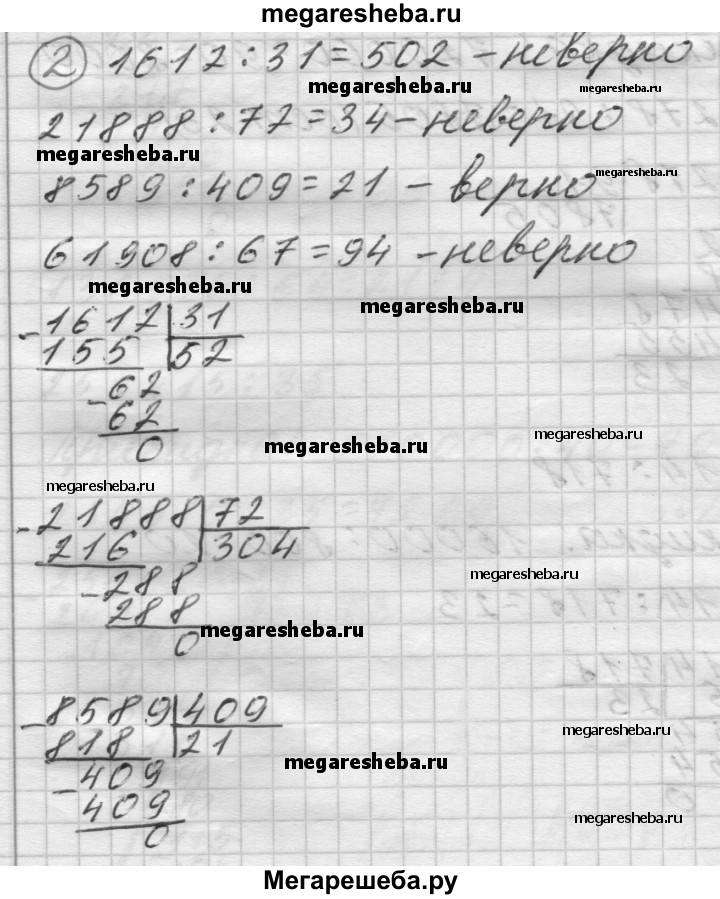 megaresheba.ru
② 1612 : 31 = 502 - неверно
megaresheba.ru
megaresheba.ru
21888 : 72 = 34 - неверно
megaresheba.ru
8589 : 409 = 21 - верно
megaresheba.ru
61908 : 67 = 94 - неверно
megaresheba.ru
megaresheba.ru
- 1612 | 31
155 | 52
- 62
62
0
megaresheba.ru
megaresheba.ru
megaresheba.ru
- 21888 | 72
216 | 304
- 288
288
0
megaresheba.ru
megaresheba.ru
- 8589 | 409
818 | 21
- 409
409
0
megaresheba.ru
megaresheba.ru
megaresheba.ru
Мегарешеба.ру